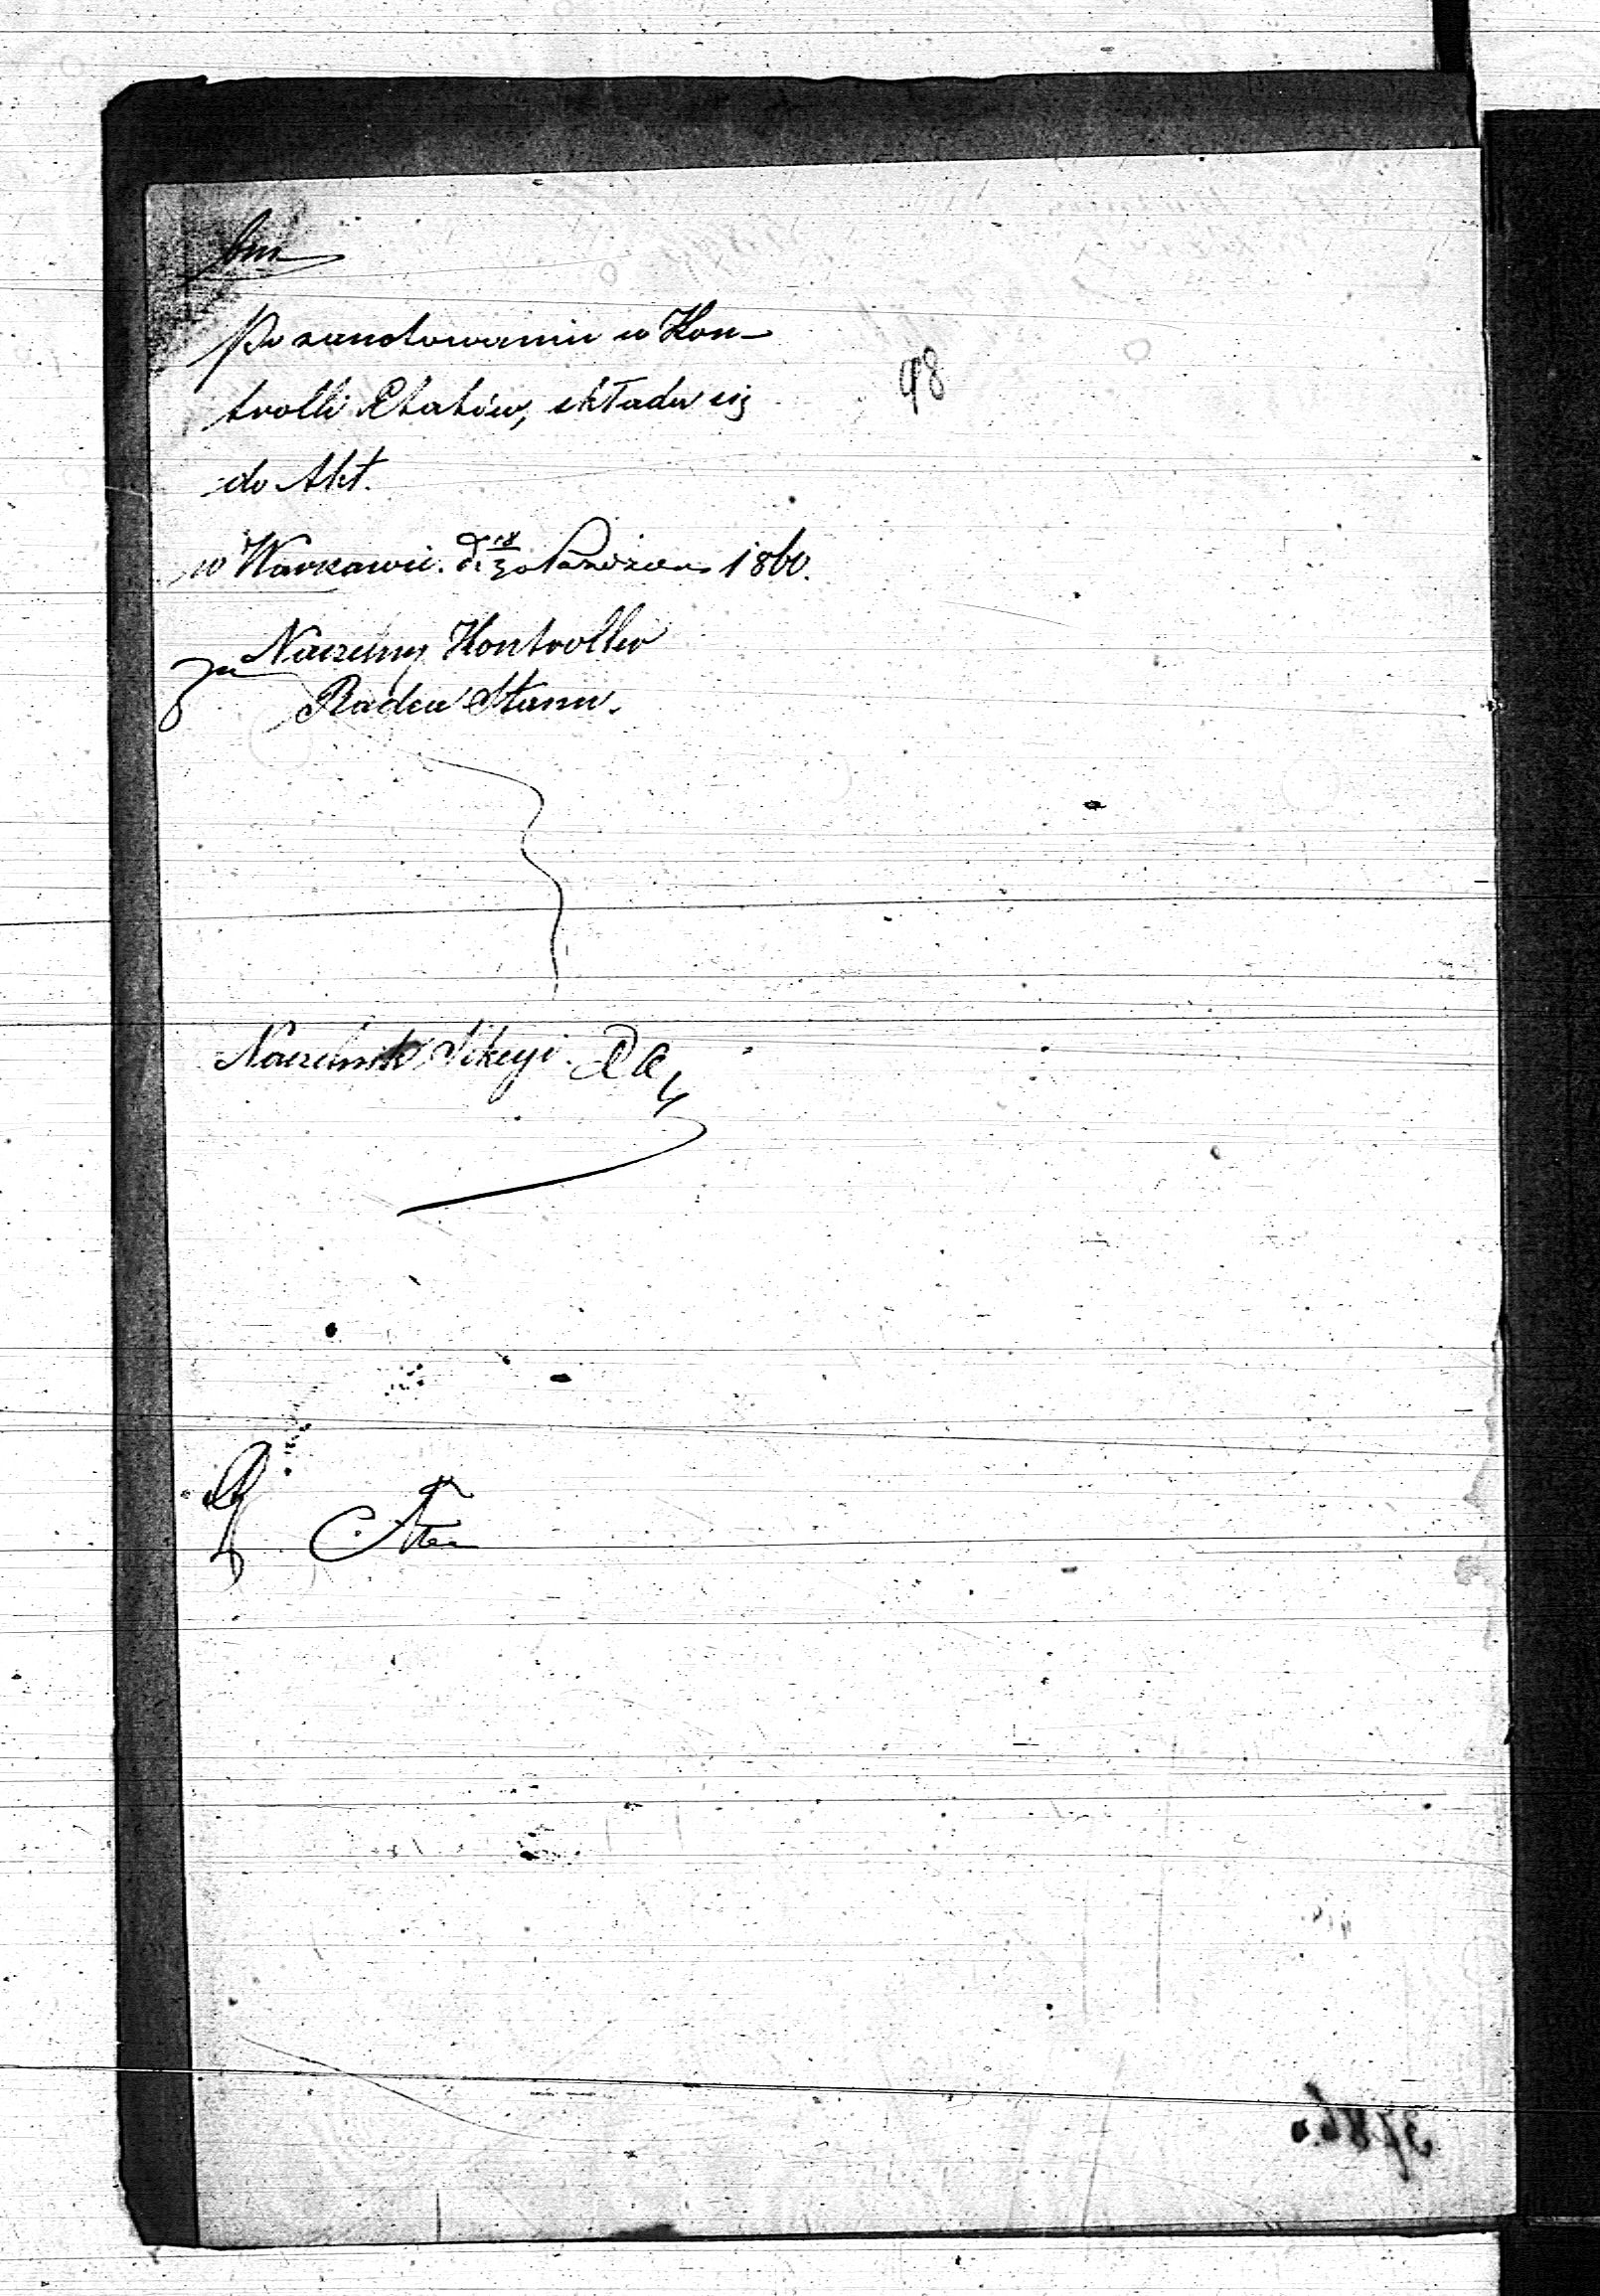 Po zanotowaniu w Kon-
98
trolli Etatów, składa się
do Akt.
w Warszawie. d. 18/30 Października 1860.
Naczelny Kontroller
za
Radca Stanu.
Naczelnik Sekcyi